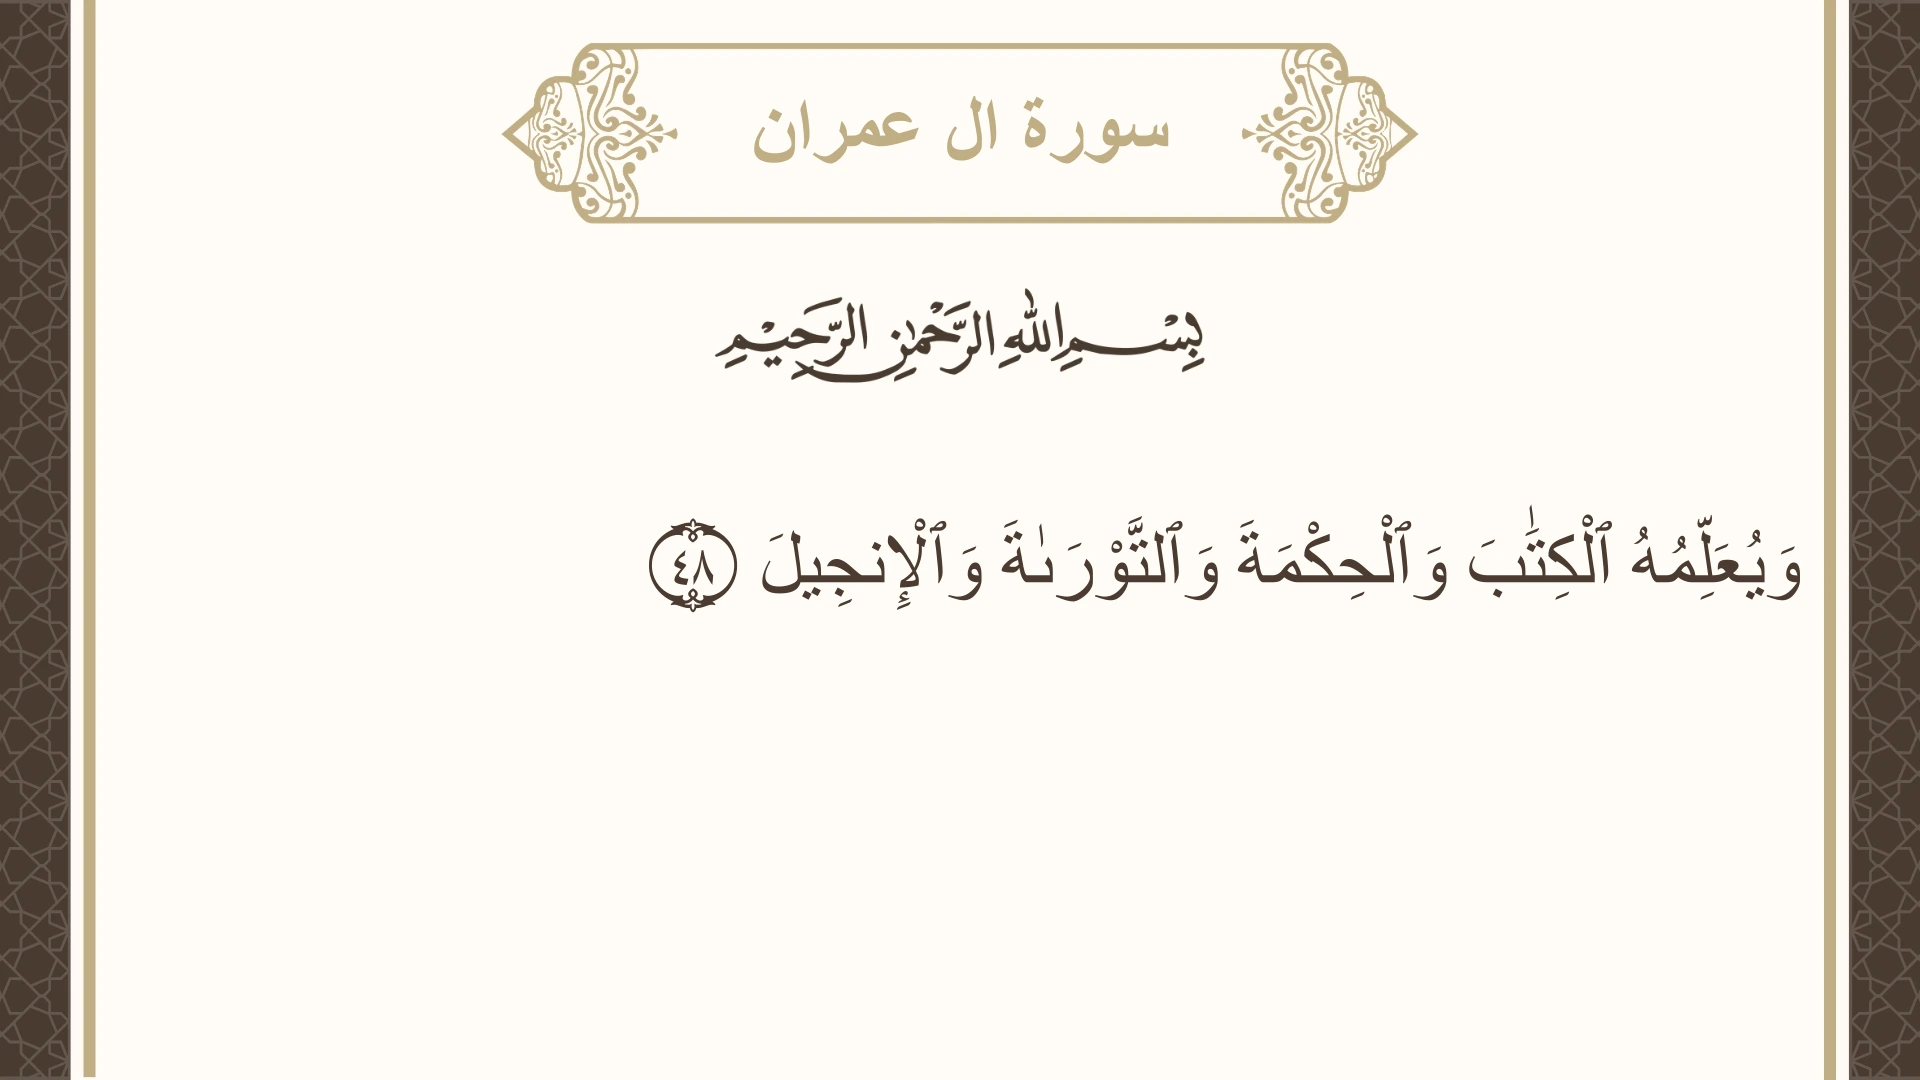 سورة ال عمران
بِسْمِ اللهِ الرَّحْمٰنِ الرَّحِيْمِ
وَيُعَلِّمُهُ ٱلْكِتَٰبَ وَٱلْحِكْمَةَ وَٱلتَّوْرَىٰةَ وَٱلْإِنجِيلَ ٤٨